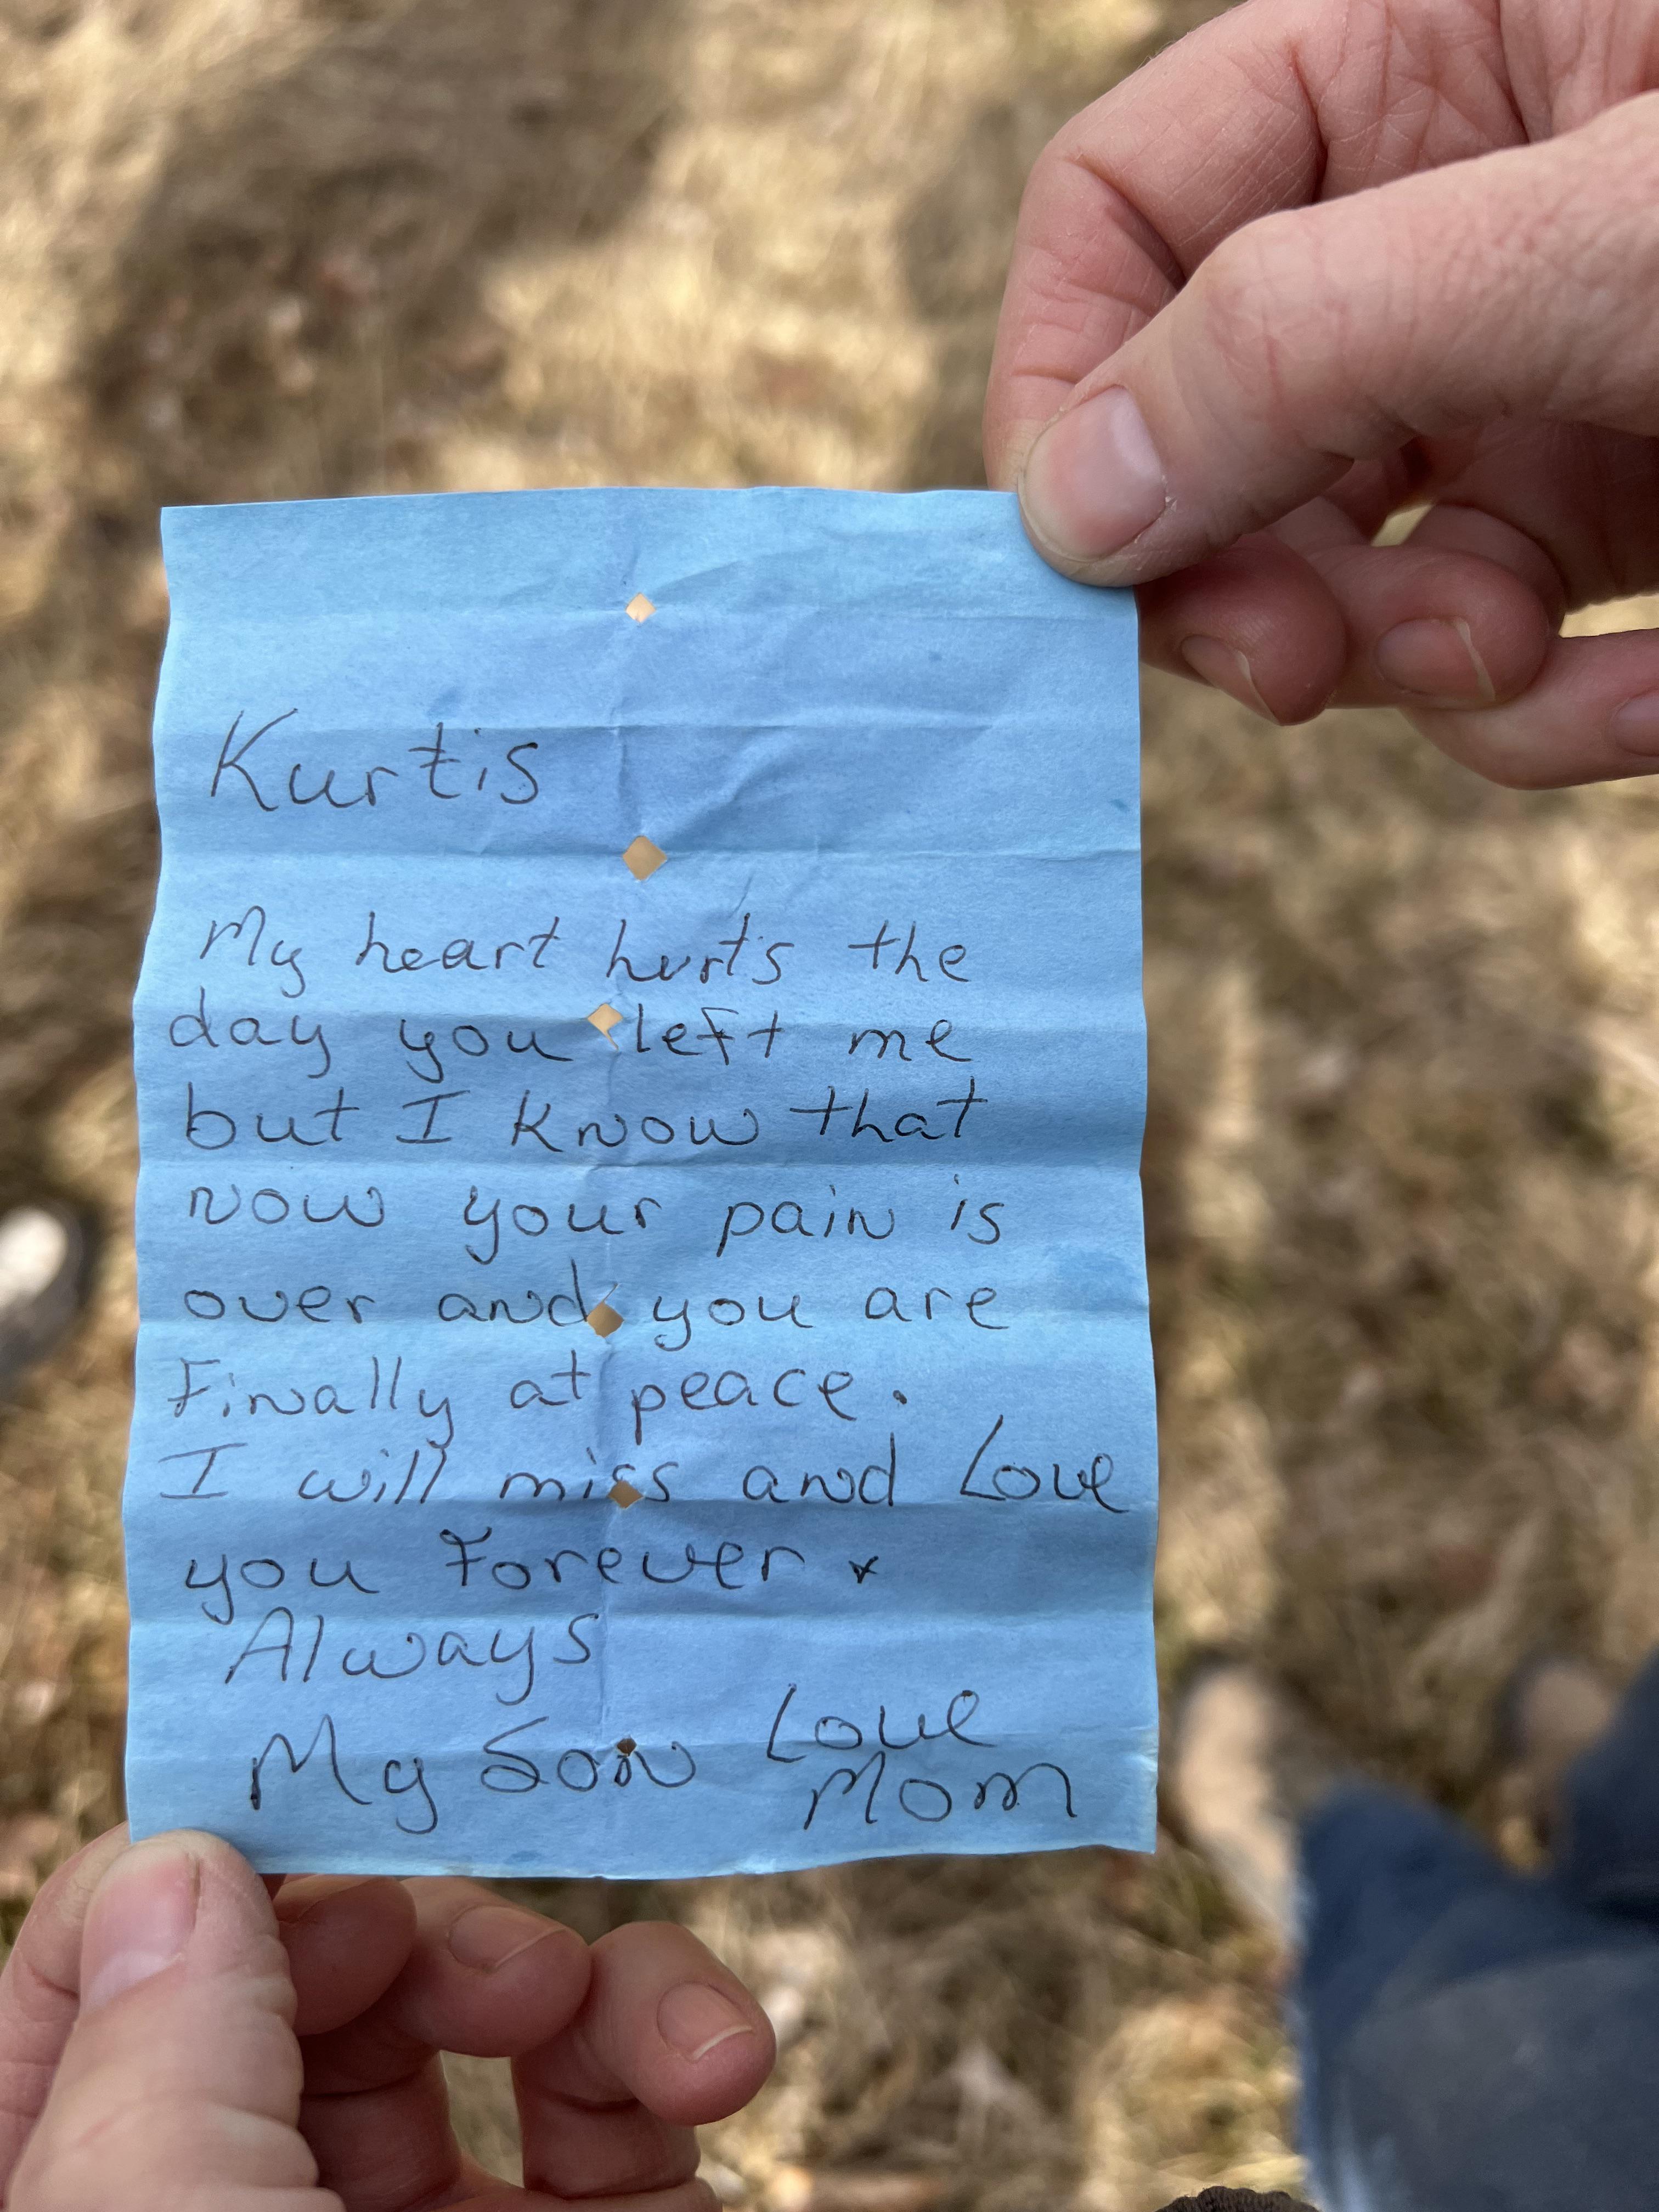 Kurtis
My heart hurts the
day you left me
but I know that
now your pain is
over and you are
Finally at peace.
I will miss and Love
you Forever &
Always
My Son Love
Mom